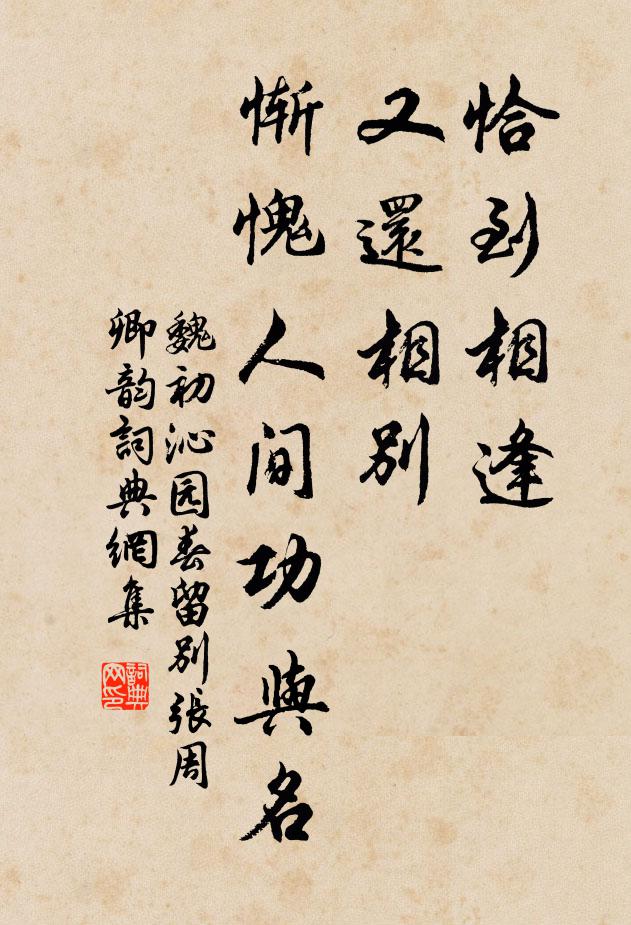 恰到相逢
又還相別
慚愧人间功與名
魏初沁园春留別張周
卿韵詞典網集
詞典网印